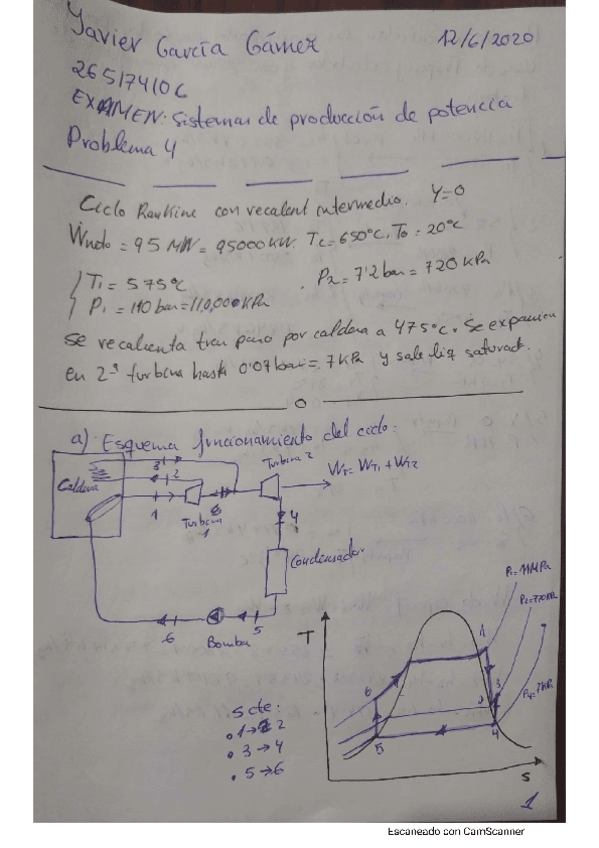 Javier García Gámez 12/6/2020
26517410C
EXAMEN: Sistemas de producción de potencia
Problema 4
Ciclo Rankine con recalent intermedio. Y=0
Ẇ = 95 MW = 95000 KW. Tc = 650°C, To = 20°C
T1 = 575°C P2 = 7'2 bar = 720 KPa
P1 = 110 bar = 11,000 KPa
se recalienta tras paso por caldera a 475°C. Se expansiona
en 2ª turbina hasta 0'07 bar = 7 KPa y sale liq saturado.
a) Esquema funcionamiento del ciclo:
Turbina 2
3
2
WT = WT1 + WT2
Caldera
1
Turbina
1
4
Condensador
6
Bomba
5
T
P1 = 11MPa
P2 = 720KPa
P4 = 7KPa
1
6
2
3
5
4
s
S cte:
1→2
3→4
5→6
1
Escaneado con CamScanner